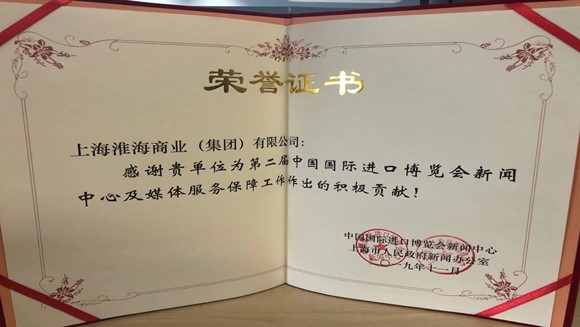 荣誉证书
上海淮海商业（集团）有限公司：
感谢贵单位为第二届中国国际进口博览会新闻
中心及媒体服务保障工作作出的积极贡献！
中国国际进口博览会新闻中心
上海市人民政府新闻办公室
二〇一九年十一月